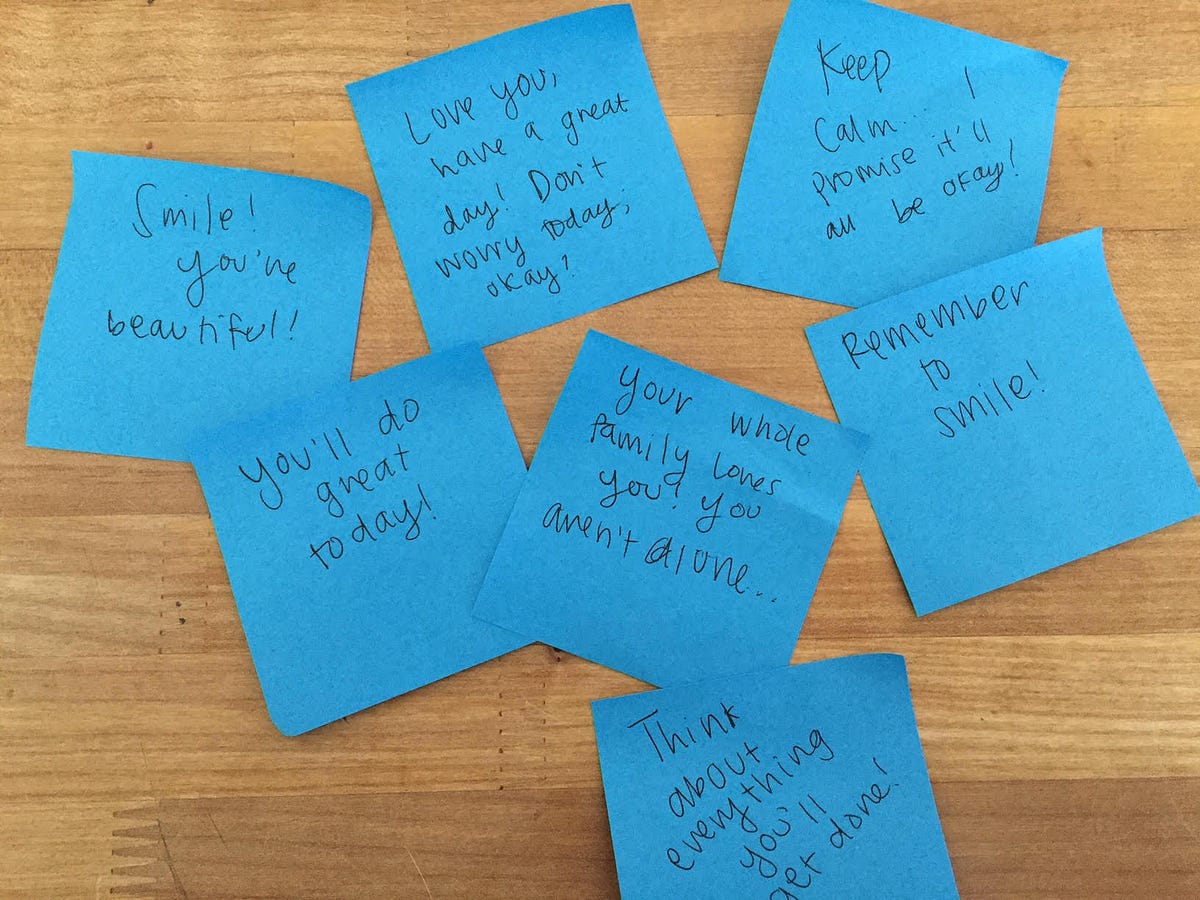 Smile!
you're
beautiful!
Love you,
have a great
day! Don't
worry today,
okay?
Keep
Calm... I
promise it'll
all be okay!
You'll do
great
today!
Your whole
family loves
you! You
aren't alone...
Remember
to
smile!
Think
about
everything
you'll
get done!